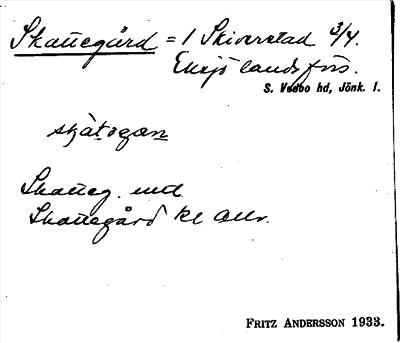 Skattegård = 1 Skiverstad 3/4.
Eksjö landsförs.
S. Vedbo hd, Jönk. l.
skàtəgæn
Skatteg. und.
Skattegård kl allr.
FRITZ ANDERSSON 1933.